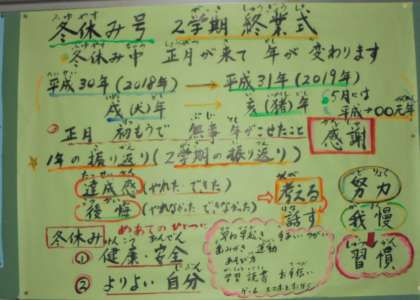 冬休み号　2学期 終業式
冬休み中　正月が来て 年が変わります
平成30年(2018年) → 平成31年(2019年)
戌(犬)年 → 亥(猪)年
5月には
平成→○○元年
②正月 初もうで 無事 年がこせたこと 感謝
1年の振り返り(2学期の振り返り)
達成感(やれた できた)
後悔(やれなかった できなかった)
考える
話す
努力
我慢
習慣
冬休み めあての
① 健康・安全
② よりよい自分
早ね早起き
はみがき 運動
あそび方
学習 読書 お手伝い